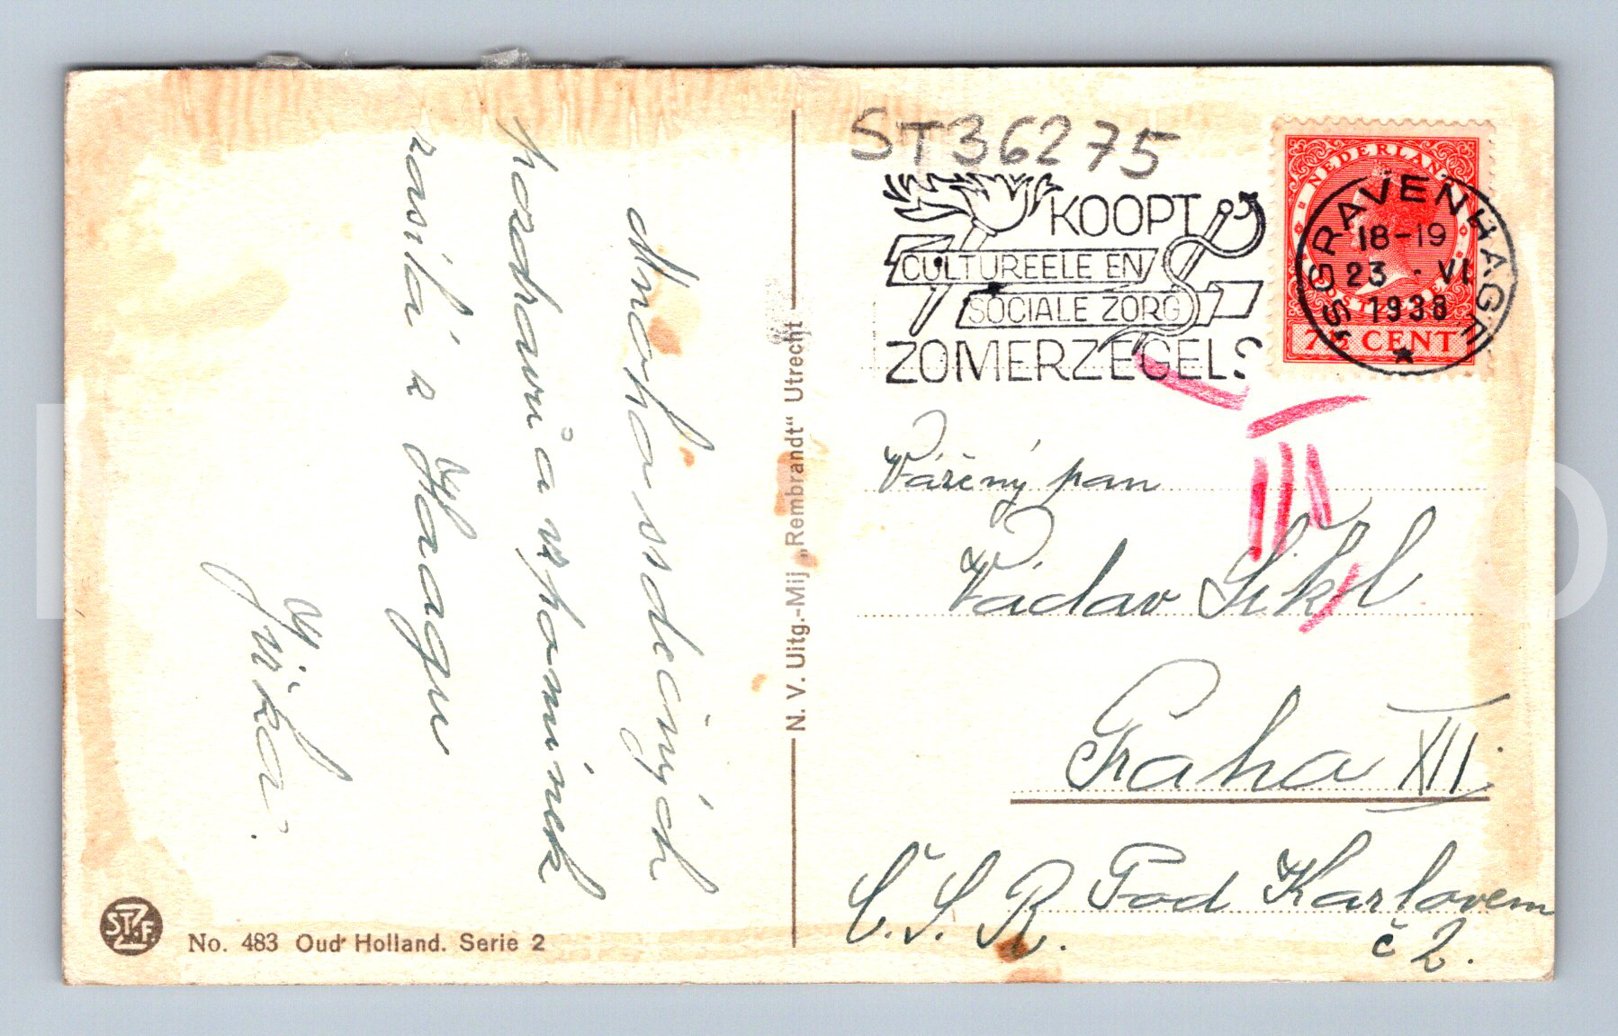 Mnoho srdečných
pozdravů a vzpomínek
zasílá z Haagu
Jiřka.
No. 483 Oud Holland. Serie 2
N. V. Uitg.-Mij „Rembrandt“ Utrecht
ST36275
KOOPT
CULTUREELE EN
SOCIALE ZORG
ZOMERZEGELS
NEDERLAND
7½ CENT
'S GRAVENHAGE
18-19
23 VI
1938
Vážený pan
Václav
Praha XII.
Č. S. R. Pod Karlovem
č 2.